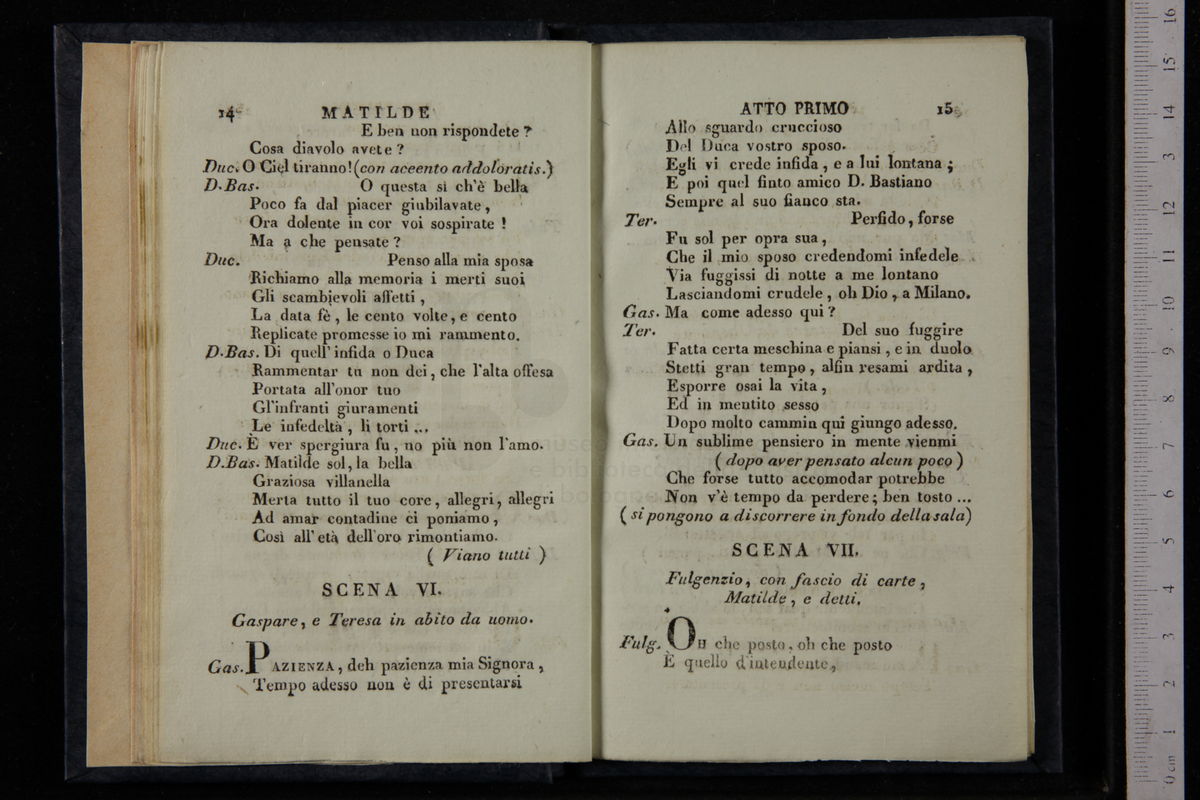 14
MATILDE
E ben non rispondete?
Cosa diavolo avete?
Duc. O Ciel tiranno! (con accento addoloratis.)
D.Bas. O questa sì ch'è bella
Poco fa dal piacer giubilavate,
Ora dolente in cor voi sospirate!
Ma a che pensate?
Duc. Penso alla mia sposa
Richiamo alla memoria i merti suoi
Gli scambievoli affetti,
La data fè, le cento volte, e cento
Replicate promesse io mi rammento.
D.Bas. Di quell' infida o Duca
Rammentar tu non dei, che l'alta offesa
Portata all'onor tuo
Gl'infranti giuramenti
Le infedeltà, li torti ...
Duc. È ver spergiura fu, no più non l'amo.
D.Bas. Matilde sol, la bella
Graziosa villanella
Merta tutto il tuo core, allegri, allegri
Ad amar contadine ci poniamo,
Così all' età dell'oro rimontiamo.
( Viano tutti )
SCENA VI.
Gaspare, e Teresa in abito da uomo.
Gas. PAZIENZA, deh pazienza mia Signora,
Tempo adesso non è di presentarsi
ATTO PRIMO
15
Allo sguardo cruccioso
Del Duca vostro sposo.
Egli vi crede infida, e a lui lontana;
E poi quel finto amico D. Bastiano
Sempre al suo fianco sta.
Ter. Perfido, forse
Fu sol per opra sua,
Che il mio sposo credendomi infedele
Via fuggissi di notte a me lontano
Lasciandomi crudele, oh Dio, a Milano.
Gas. Ma come adesso qui?
Ter. Del suo fuggire
Fatta certa meschina e piansi, e in duolo
Stetti gran tempo, alfin resami ardita,
Esporre osai la vita,
Ed in mentito sesso
Dopo molto cammin qui giungo adesso.
Gas. Un sublime pensiero in mente vienmi
( dopo aver pensato alcun poco )
Che forse tutto accomodar potrebbe
Non v'è tempo da perdere; ben tosto ...
( si pongono a discorrere in fondo della sala)
SCENA VII.
Fulgenzio, con fascio di carte,
Matilde, e detti.
Fulg. OH che posto, oh che posto
È quello d'intendente,